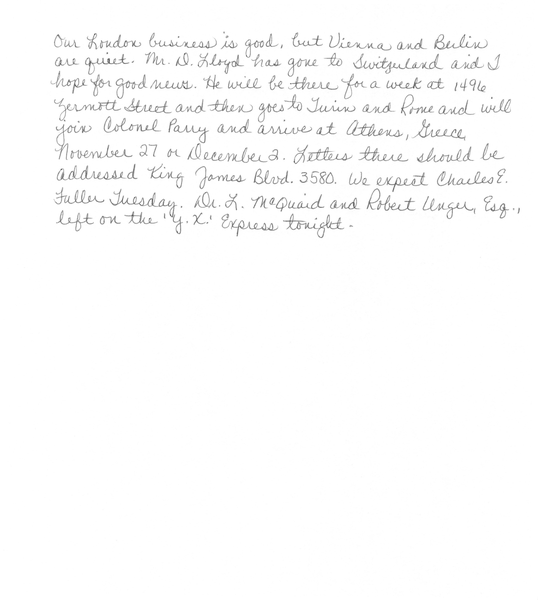 Our London business is good, but Vienna and Berlin
are quiet. Mr. D. Lloyd has gone to Switzerland and I
hope for good news. He will be there for a week at 1496
Zermott Street and then goes to Turin and Rome and will
join Colonel Parry and arrive at Athens, Greece,
November 27 or December 2. Letters there should be
addressed King James Blvd. 3580. We expect Charles E.
Fuller Tuesday. Dr. L. McQuaid and Robert Unger, Esq.,
left on the 'Y.X.' Express tonight.